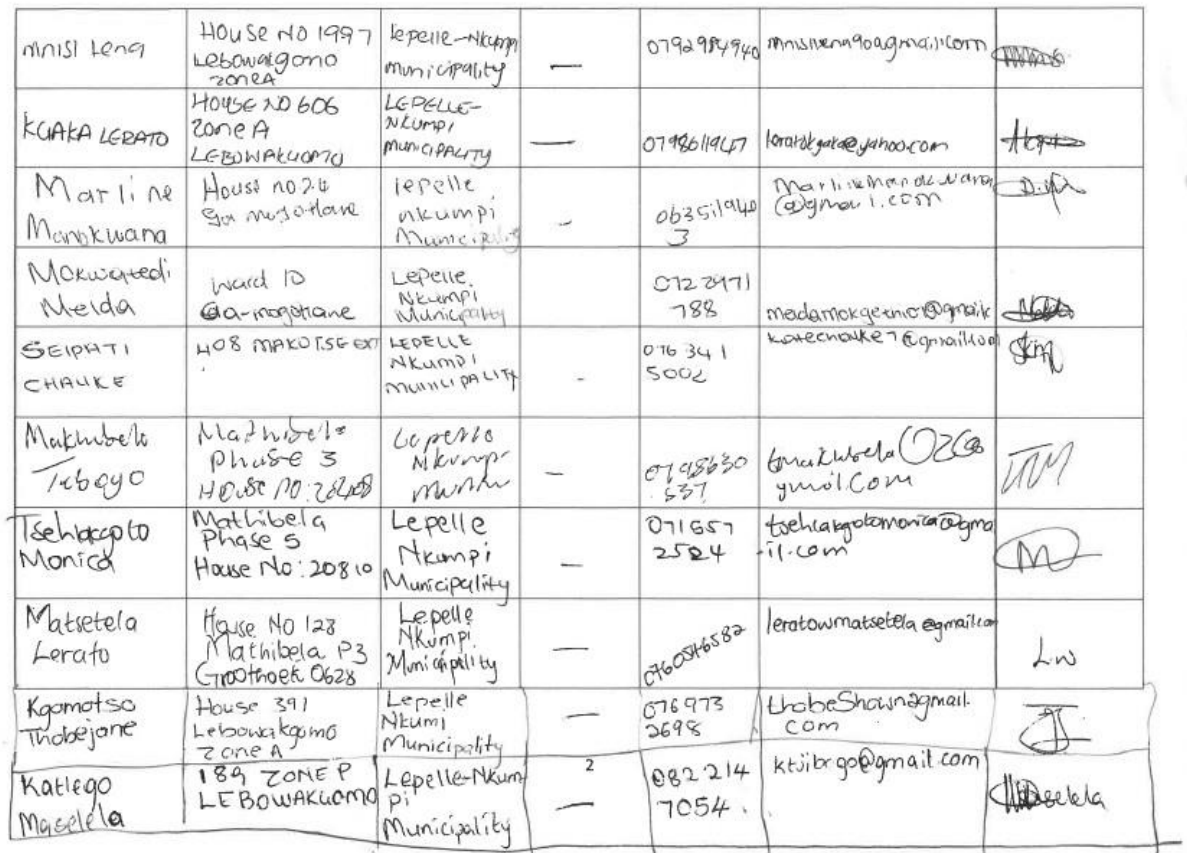 mnisi Lena
House No 1997
Lebowakgomo
zone A
Lepelle-Nkumpi
municipality
—
0792984940
KGAKA LERATO
HOUSE NO 606
Zone A
LEBOWAKGOMO
LEPELLE-
NKUMPI
MUNICIPALITY
—
0798611947
Marline
Manokwana
House no 24
lepelle
nkumpi
Municipality
-
063511940
3
Mokwatedi
Melda
ward 10
Ga-mogotlane
Lepelle
Nkumpi
Municipality
072 2971
788
SEIPHTI
CHAUKE
408 MAKOTSE EXT
LEPELLE
NKUMPI
MUNICIPALITY
-
076 341
5002
Makhubela
Tebogo
Mathibela
Phase 3
House no:
Nkumpi
—
537
gmail.com
Tsehlakgolo
Monica
Mathibela
Phase 5
House No: 20810
Lepelle
Nkumpi
Municipality
—
071657
2524
tsehlakgolomonica@gma
il.com
M
Matsetela
Lerato
House No 128
Mathibela P3
Groothoek 0628
Lepelle
Nkumpi
Municipality
—
0760546582
leratowmatsetela@gmail.com
L.W
Kgomotso
Thobejane
House 391
Lebowakgomo
Zone A
Lepelle
Nkumi
Municipality
—
076 973
2698
thobeShown@gmail.
com
Katlego
Maselela
189 ZONE P
LEBOWAKGOMO
Lepelle-Nkum
pi
Municipality
2
—
082 214
7054.
ktjibrgo@gmail.com